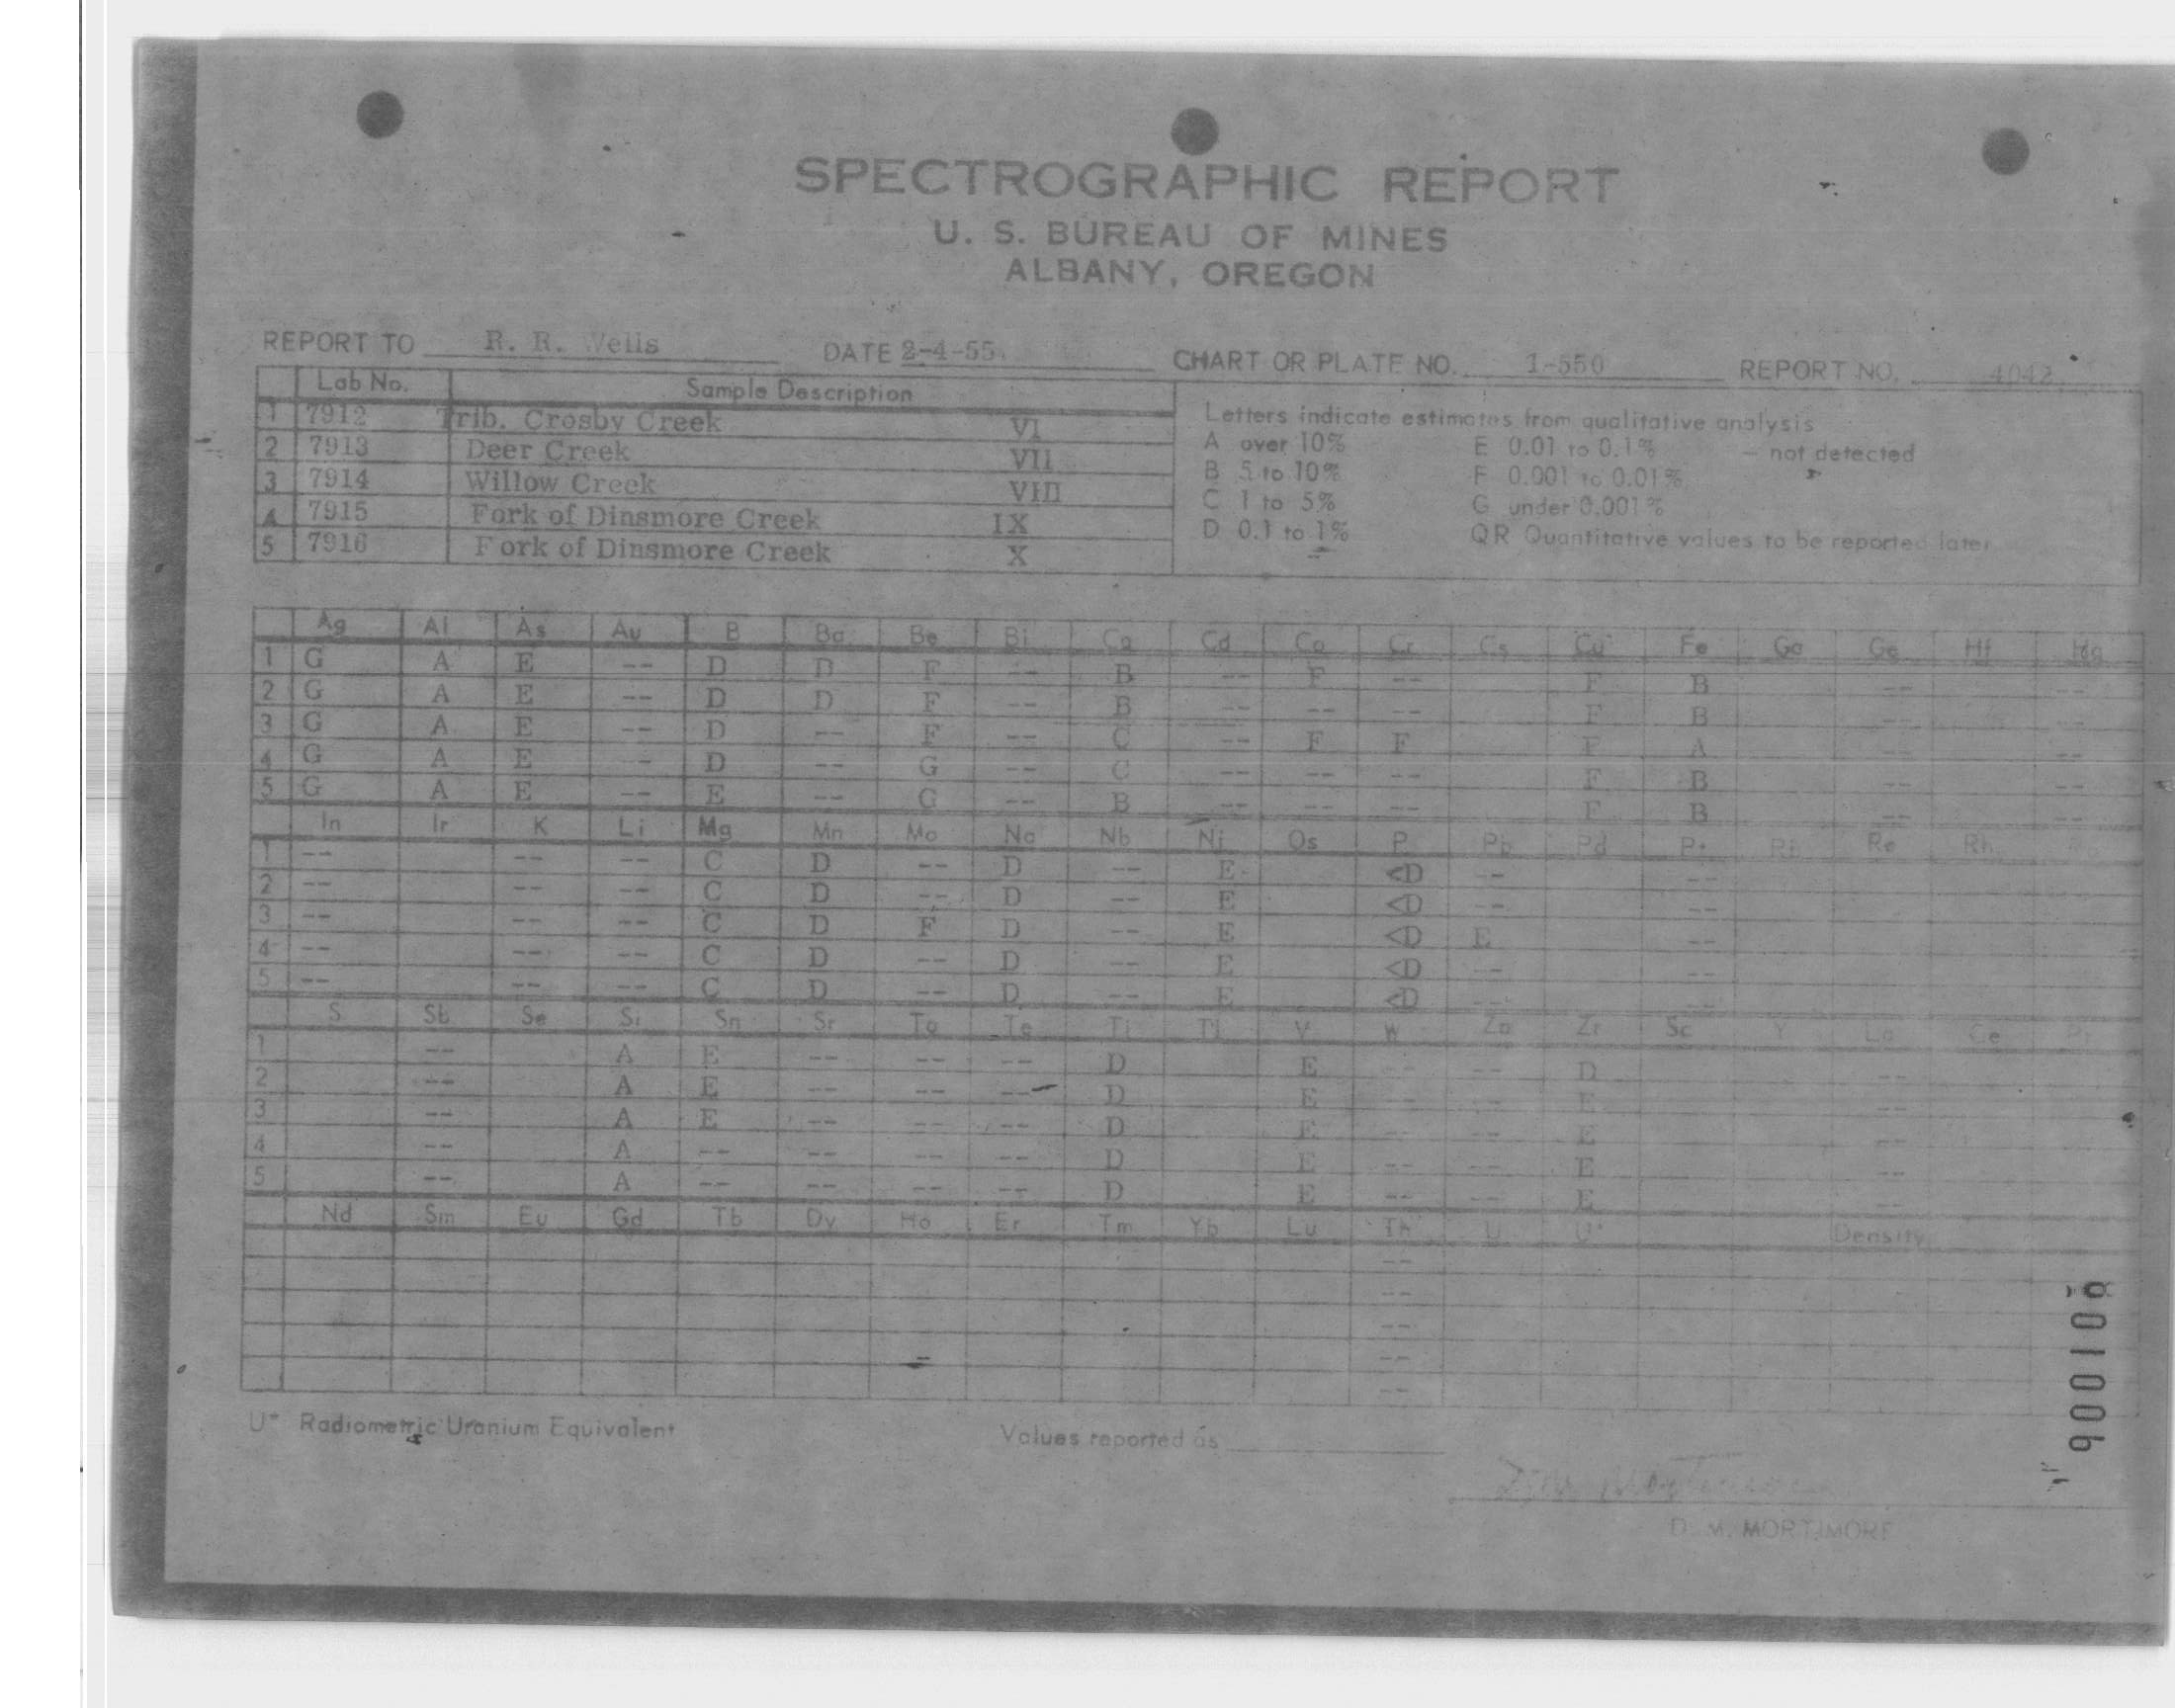 SPECTROGRAPHIC REPORT
U. S. BUREAU OF MINES
ALBANY, OREGON
REPORT TO R. R. Wells DATE 2-4-55 CHART OR PLATE NO. 1-550 REPORT NO. 4042
Lab No. Sample Description
1 7912 Trib. Crosby Creek VI
2 7913 Deer Creek VII
3 7914 Willow Creek VIII
4 7915 Fork of Dinsmore Creek IX
5 7916 Fork of Dinsmore Creek X
Letters indicate estimates from qualitative analysis
A over 10% E 0.01 to 0.1% - not detected
B 5 to 10% F 0.001 to 0.01%
C 1 to 5% G under 0.001%
D 0.1 to 1% QR Quantitative values to be reported later
Ag Al As Au B Ba Be Bi Ca Cd Co Cr Cs Cu Fe Ga Ge Hf Hg
1 G A E -- D D F -- B -- F -- F B -- --
2 G A E -- D D F -- B -- -- -- F B -- --
3 G A E -- D -- F -- C -- F F F A -- --
4 G A E -- D -- G -- C -- -- -- F B -- --
5 G A E -- E -- G -- B -- -- -- F B -- --
In Ir K Li Mg Mn Mo Na Nb Ni Os P Pb Pd Pt Re Rh
1 -- -- -- C D -- D -- E <D -- --
2 -- -- -- C D -- D -- E <D -- --
3 -- -- -- C D F D -- E <D E --
4 -- -- -- C D -- D -- E <D -- --
5 -- -- -- C D -- D -- E <D -- --
S Sb Se Si Sn Sr Ta Te Ti Tl V W Zn Zr Sc Y La Ce
1 -- A E -- -- -- D E -- -- D --
2 -- A E -- -- -- D E -- -- E --
3 -- A E -- -- -- D E -- -- E --
4 -- A -- -- -- -- D E -- -- E --
5 -- A -- -- -- -- D E -- -- E --
Nd Sm Eu Gd Tb Dy Ho Er Tm Yb Lu Th U U* Density
--
--
--
--
--
U* Radiometric Uranium Equivalent Values reported as
D. M. MORTIMORE